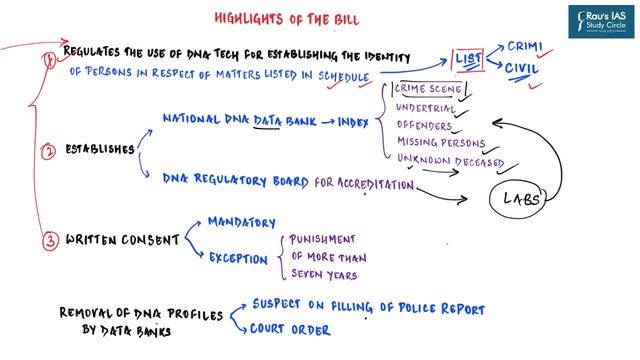 HIGHLIGHTS OF THE BILL
Rau's IAS
Study Circle
1 REGULATES THE USE OF DNA TECH FOR ESTABLISHING THE IDENTITY
OF PERSONS IN RESPECT OF MATTERS LISTED IN SCHEDULE
LIST
CRIMI
CIVIL
2 ESTABLISHES
NATIONAL DNA DATA BANK → INDEX
CRIME SCENE
UNDERTRIAL
OFFENDERS
MISSING PERSONS
UNKNOWN DECEASED
DNA REGULATORY BOARD FOR ACCREDITATION
LABS
3 WRITTEN CONSENT
MANDATORY
EXCEPTION
PUNISHMENT
OF MORE THAN
SEVEN YEARS
REMOVAL OF DNA PROFILES
BY DATA BANKS
SUSPECT ON FILLING OF POLICE REPORT
COURT ORDER